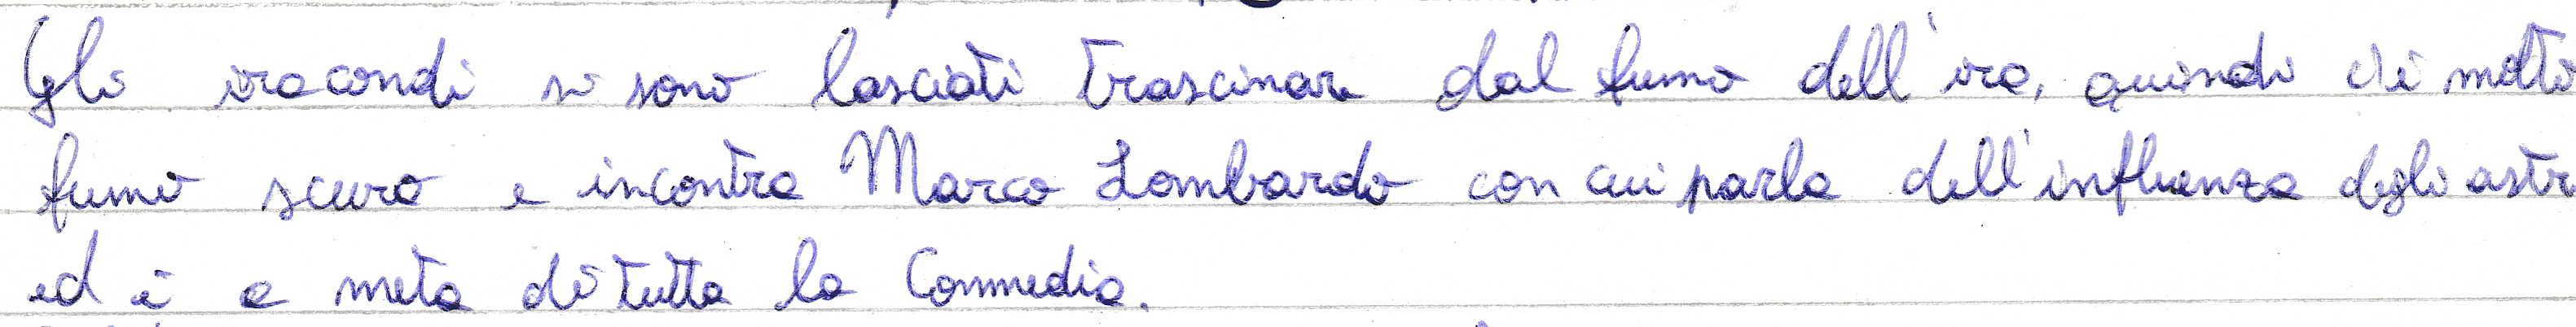 Gli iracondi si sono lasciati trascinare dal fumo dell'ira, quindi c'è molto
fumo scuro e incontra Marco Lombardo con cui parla dell'influenza degli astr
ed è a metà di tutta la Commedia.